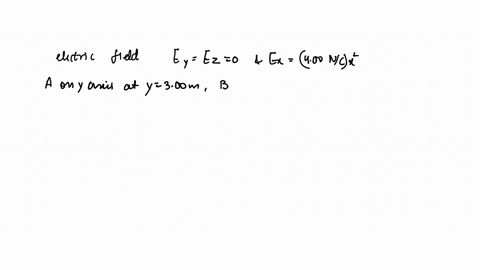 electric field Ey = Ez = 0 & Ex = (4.00 N/C)x²
A on y axis at y = 3.00m, B